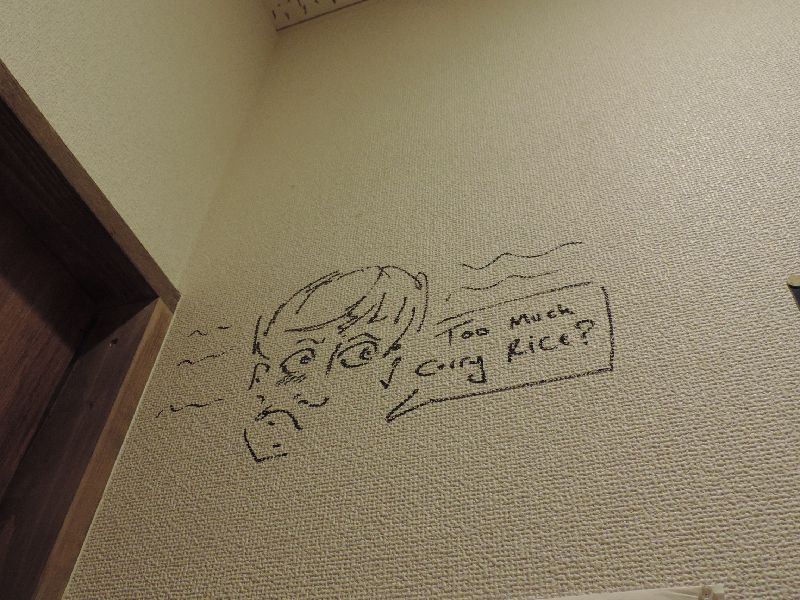 Too Much
Curry Rice?